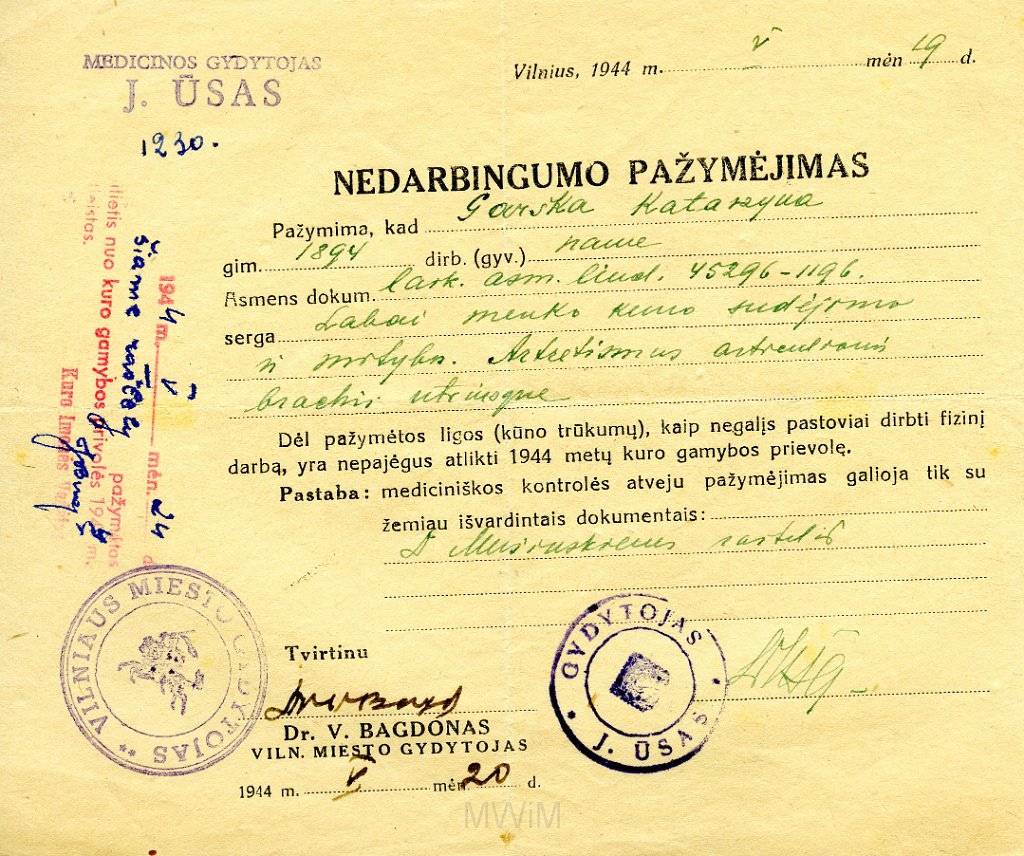 MEDICINOS GYDYTOJAS
J. ŪSAS
1230.
Vilnius, 1944 m. V mėn. 19 d.
NEDARBINGUMO PAŽYMĖJIMAS
Pažymima, kad Gorska Katarzyna
gim. 1894 dirb. (gyv.) name
Asmens dokum. laik. asm. liud. 45296-1196.
serga Labai menko kūno sudėjimo
ir mityba. Artretismus
brachii utriusque
Dėl pažymėtos ligos (kūno trūkumų), kaip negalįs pastoviai dirbti fizinį
darbą, yra nepajėgus atlikti 1944 metų kuro gamybos prievolę.
Pastaba: mediciniškos kontrolės atveju pažymėjimas galioja tik su
žemiau išvardintais dokumentais:
D raštelis
Tvirtinu
Dr. V. BAGDONAS
VILN. MIESTO GYDYTOJAS
1944 m. V mėn. 20 d.
VILNIAUS MIESTO GYDYTOJAS **
GYDYTOJAS * J. ŪSAS *
1944 m. V mėn. 24 d.
šiame pažymėtas
nuo kuro gamybos prievolės 194 m.
Kuro
MWiM